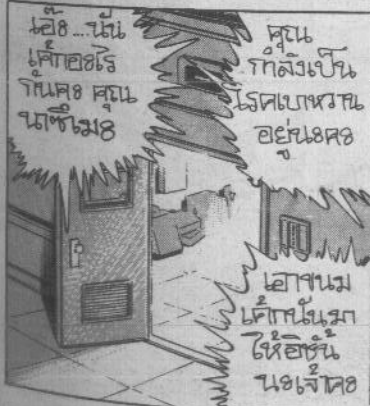 เอ๊ะ....นั่น
เค้กอะไร
กันคะ คุณ
นาซึเมะ
คุณ
กำลังเป็น
โรคเบาหวาน
อยู่นะคะ
เอาขนม
เค้กนั่นมา
ให้อิชั้น
นะเจ้าคะ